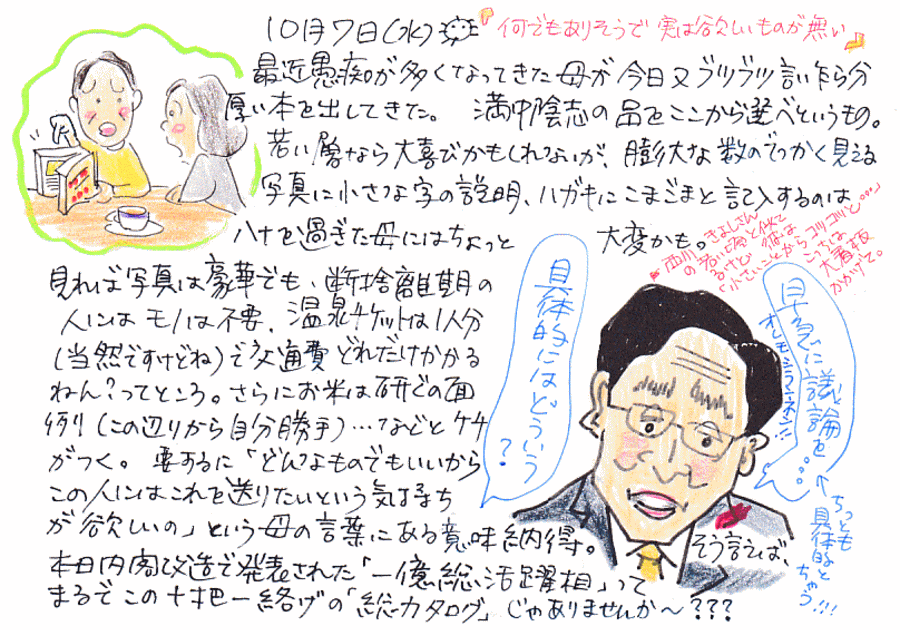 10月7日(水)
『何でもありそうで 実は欲しいものが無い』
最近愚痴が多くなってきた母が今日又ブツブツ言い乍ら分
厚い本を出してきた。 満中陰志の品をここから選べというもの。
若い層なら大喜びかもしれないが、膨大な数のでっかく見える
写真に小さな字の説明、ハガキにこまごまと記入するのは
八十を過ぎた母にはちょっと 大変かも。
見れば写真は豪華でも、断捨離期の
人にはモノは不要、温泉チケットは1人分
(当然ですけどね)で交通費どれだけかかる
ねん?ってところ。さらにお米は研ぐの面
倒(この辺りから自分勝手)…などとケチ
がつく。 要するに「どんなものでもいいから
この人にはこれを送りたいという気持ち
が欲しいの」という母の言葉にある意味納得。
本日内閣改造で発表された「一億総活躍相」って
まるでこの十把一絡げの「総カタログ」じゃありませんか〜???
西川きよしさん
の若い頃と似て
るけど、彼は
「小さいことからコツコツと…」
こっちは
大看板
かかげて。
具体的にはどういう
?
早急に議論を…
←ちっとも
具体的と
ちゃう!!!
そう言えば、